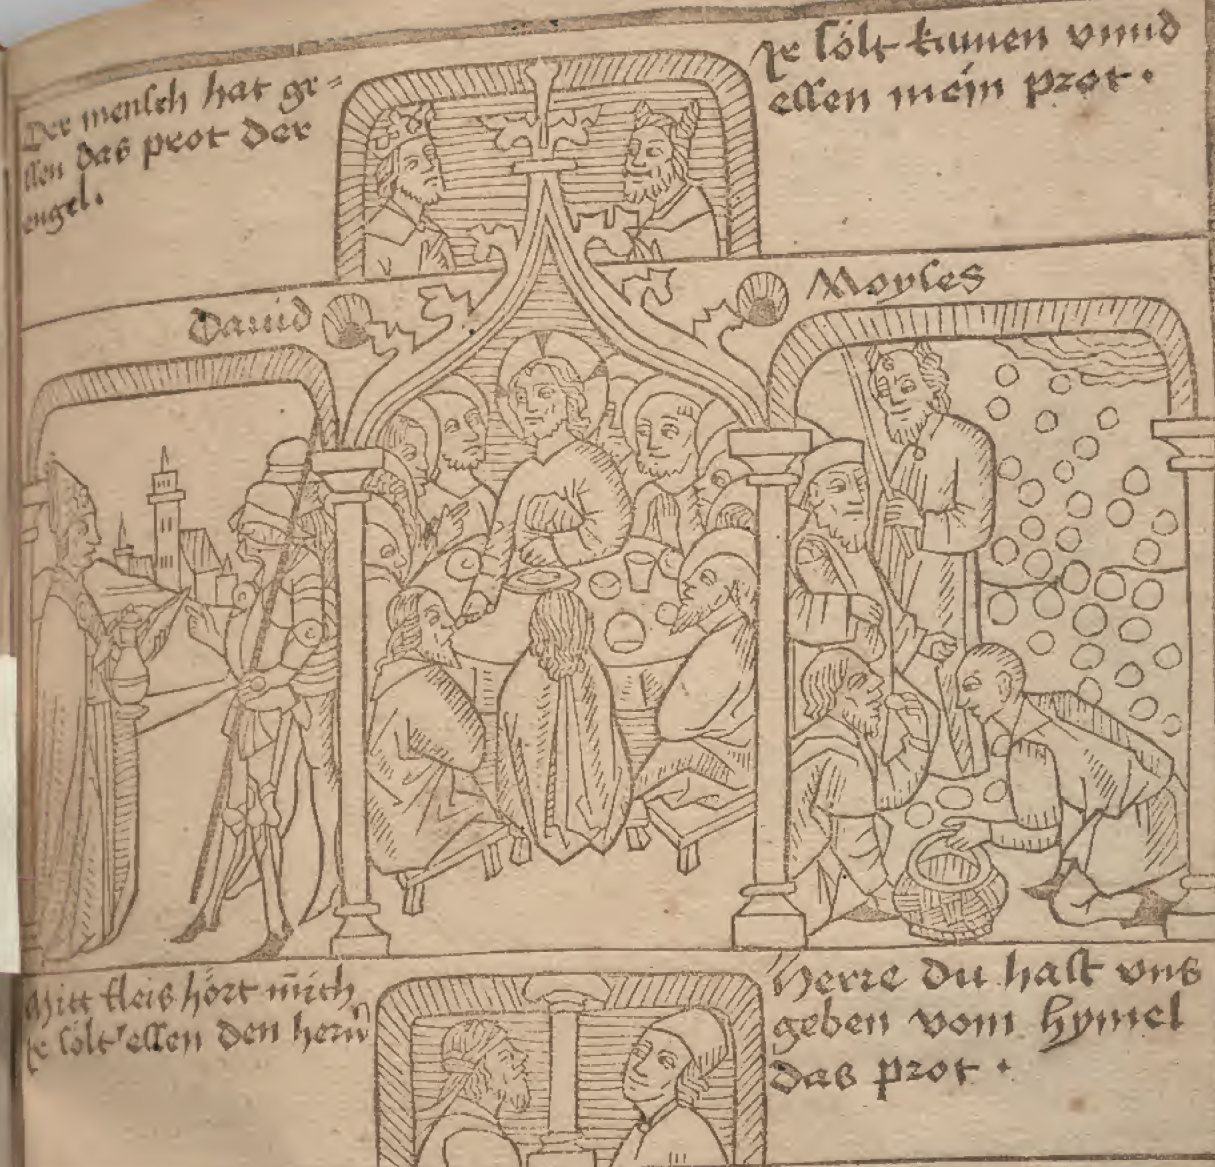 Der mensch hat ge=
ssen das prot der
engel.
Je sölt kumen vnnd
essen mein prot.
Dauid
Moyses
Mitt fleis hört mich
je sölt essen den herrn
Herre du hast vns
geben vom hymel
das prot.